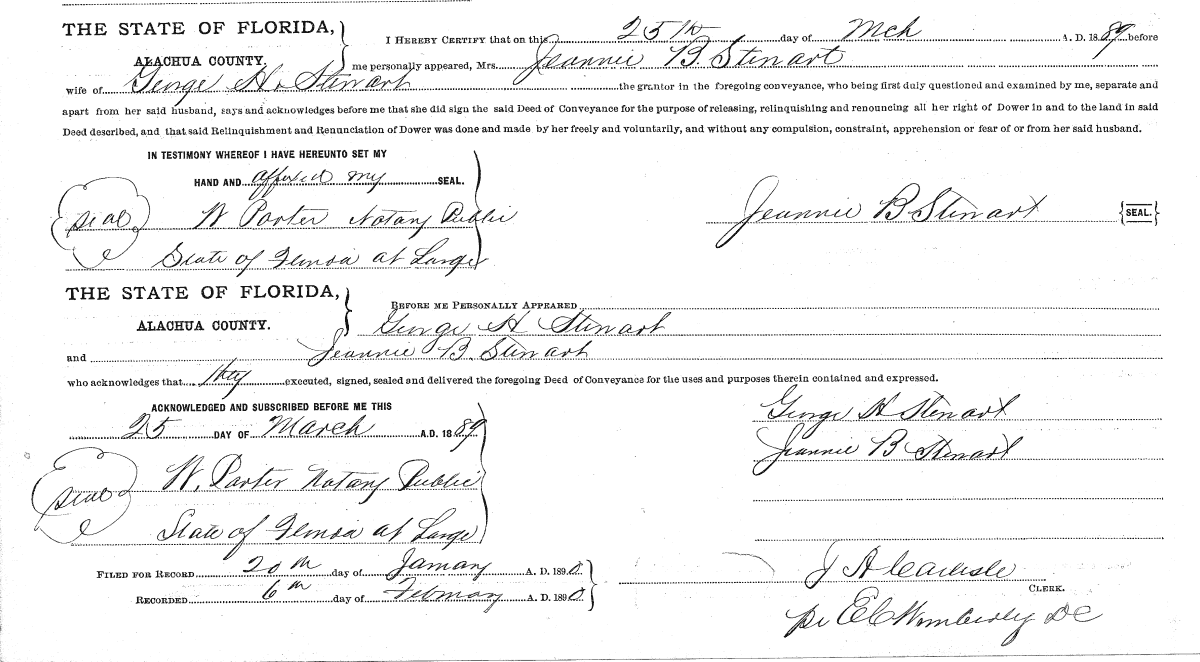 THE STATE OF FLORIDA,
ALACHUA COUNTY.
I HEREBY CERTIFY that on this 25th day of Mch A. D. 1889 before
me personally appeared, Mrs. Jeannie B. Stewart
wife of George H. Stewart the grantor in the foregoing conveyance, who being first duly questioned and examined by me, separate and
apart from her said husband, says and acknowledges before me that she did sign the said Deed of Conveyance for the purpose of releasing, relinquishing and renouncing all her right of Dower in and to the land in said
Deed described, and that said Relinquishment and Renunciation of Dower was done and made by her freely and voluntarily, and without any compulsion, constraint, apprehension or fear of or from her said husband.
IN TESTIMONY WHEREOF I HAVE HEREUNTO SET MY
HAND AND affixed my SEAL.
seal W Porter Notary Public
State of Florida at Large
Jeannie B Stewart {SEAL.}
THE STATE OF FLORIDA,
ALACHUA COUNTY.
BEFORE ME PERSONALLY APPEARED
George H Stewart
and Jeannie B. Stewart
who acknowledges that they executed, signed, sealed and delivered the foregoing Deed of Conveyance for the uses and purposes therein contained and expressed.
ACKNOWLEDGED AND SUBSCRIBED BEFORE ME THIS
25 DAY OF March A.D. 1889
seal W. Porter Notary Public
State of Florida at Large
George H Stewart
Jeannie B Stewart
FILED FOR RECORD 20th day of January A. D. 1890.
RECORDED 6th day of February A. D. 1890
J A Carlisle
CLERK.
pr E C Wimberly DC